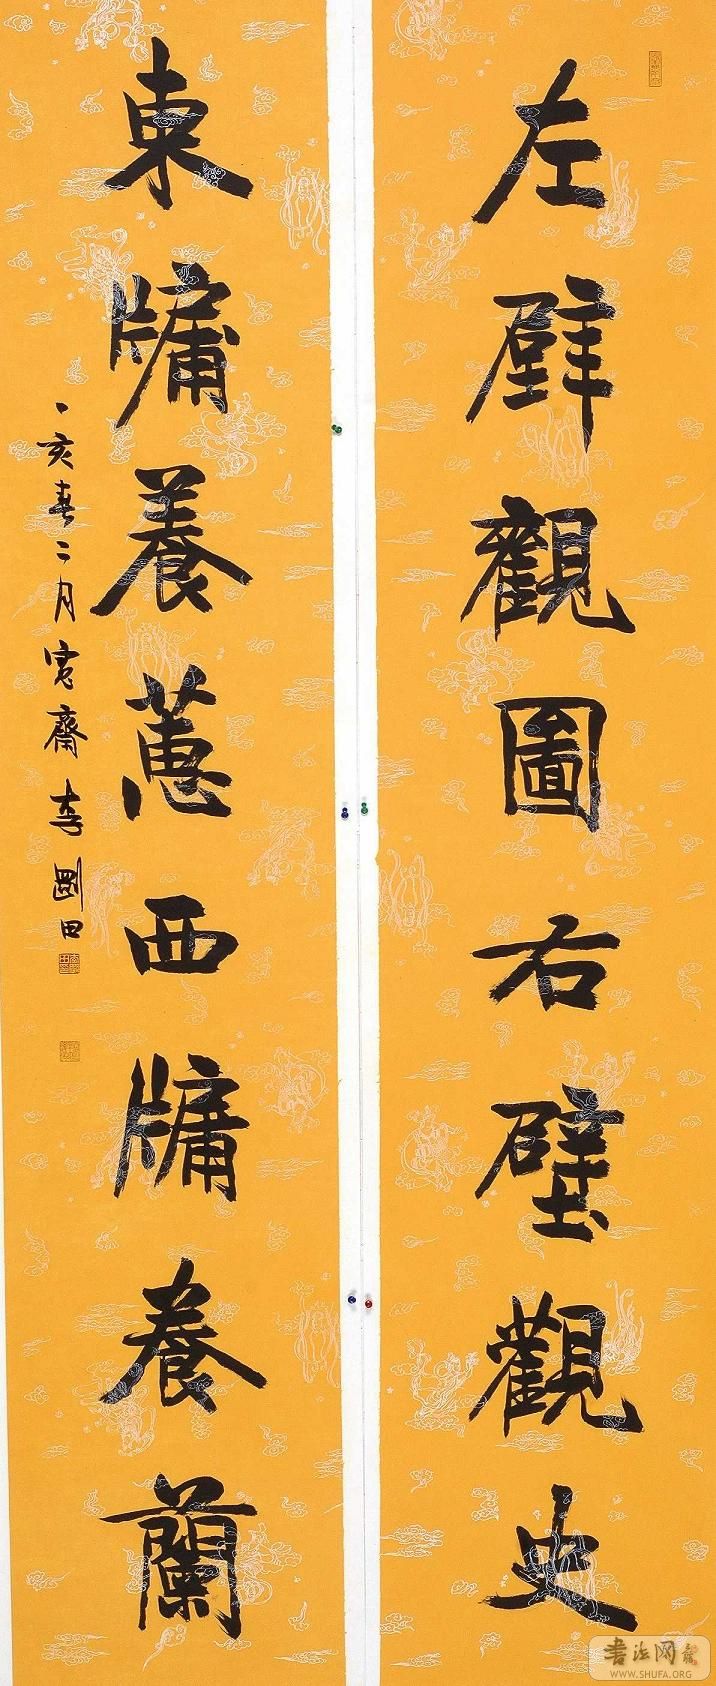 左壁觀圖右壁觀史
東牖養蕙西牖養蘭
亥春二月寬齋李剛田
书法网
WWW.SHUFA.ORG